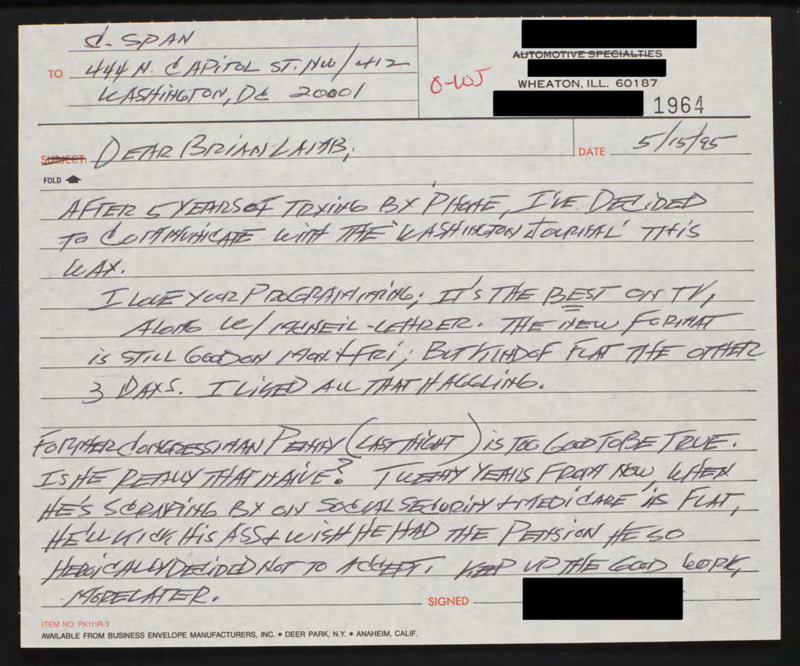 C-SPAN
TO 444 N. CAPITOL ST. NW/412
WASHINGTON, DC 20001
O-WJ
AUTOMOTIVE SPECIALTIES
WHEATON, ILL. 60187
1964
SUBJECT: DEAR BRIAN LAMB,
DATE 5/15/95
FOLD
AFTER 5 YEARS OF TRYING BY PHONE, I'VE DECIDED
TO COMMUNICATE WITH THE 'WASHINGTON JOURNAL' THIS
WAY.
I LOVE YOUR PROGRAMMING; IT'S THE BEST ON TV,
ALONG W/ MCNEIL-LEHRER. THE NEW FORMAT
IS STILL GOOD ON MON + FRI; BUT KINDOF FLAT THE OTHER
3 DAYS. I LIKED ALL THAT HAGGLING.
FORMER CONGRESSMAN PENNY (LAST NIGHT) IS TOO GOOD TO BE TRUE.
IS HE REALLY THAT NAIVE? TWENTY YEARS FROM NOW, WHEN
HE'S SCRAPING BY ON SOCIAL SECURITY + MEDICARE IS FLAT,
HE'LL KICK HIS ASS + WISH HE HAD THE PENSION HE SO
HEROICALLY DECIDED NOT TO ACCEPT. KEEP UP THE GOOD WORK,
MORE LATER.
SIGNED
ITEM NO. PK111R-3
AVAILABLE FROM BUSINESS ENVELOPE MANUFACTURERS, INC. • DEER PARK, N.Y. • ANAHEIM, CALIF.